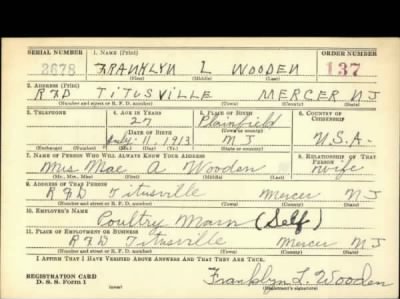 SERIAL NUMBER 1. NAME (Print) ORDER NUMBER
2678 FRANKLYN L WOODEN 137
(First) (Middle) (Last)
2. ADDRESS (Print)
RFD TITUSVILLE MERCER NJ
(Number and street or R. F. D. number) (Town) (County) (State)
3. TELEPHONE 4. AGE IN YEARS 5. PLACE OF BIRTH 6. COUNTRY OF CITIZENSHIP
27 Plainfield
DATE OF BIRTH (Town or county)
July 11 1913 NJ U.S.A.
(Exchange) (Number) (Mo.) (Day) (Yr.) (State or country)
7. NAME OF PERSON WHO WILL ALWAYS KNOW YOUR ADDRESS 8. RELATIONSHIP OF THAT PERSON
Mrs Mae A Wooden wife
(Mr., Mrs., Miss) (First) (Middle) (Last)
9. ADDRESS OF THAT PERSON
RFD Titusville Mercer NJ
(Number and street or R. F. D. number) (Town) (County) (State)
10. EMPLOYER'S NAME
Poultry Man (Self)
11. PLACE OF EMPLOYMENT OR BUSINESS
RFD Titusville Mercer NJ
(Number and street or R. F. D. number) (Town) (County) (State)
I AFFIRM THAT I HAVE VERIFIED ABOVE ANSWERS AND THAT THEY ARE TRUE.
REGISTRATION CARD
D. S. S. Form 1 (over) Franklyn L. Wooden
(Registrant's signature)